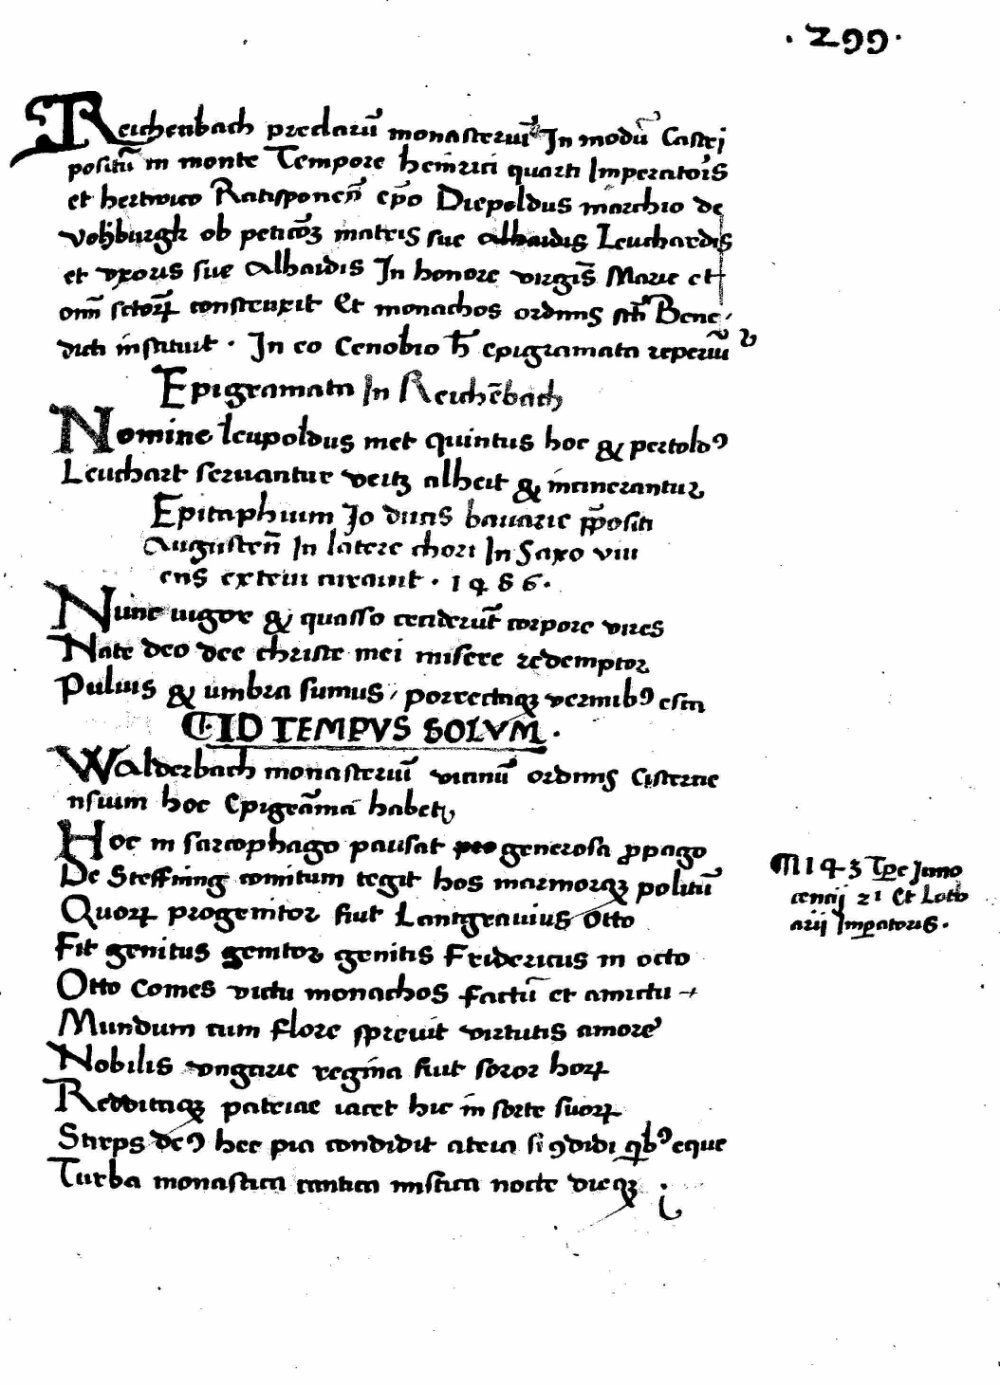 . 299 .
Reichenbach preclarū monasteriū In modū Castrj
positū in monte Tempore heinrici quarti Imperatoris
et hertwico Ratisponeñ ep̄o Diepoldus marchio de
vohburgk ob petic̄oꝫ matris sue alhaidis Leuchardis
et vxoris sue Alhaidis In honore virgīs Marie et
om̄ sctōꝝ construxit Et monachos ordinis sti Bene,
dicti instituit . In eo Cenobio h̄ epigramata reperiū
Epigramata In Reichēbach
Nomine leupoldus met quintus hoc & pertoldꝰ
Leuchart seruantur veitz alheit & incinerantur
Epitaphium Jo ducis bauarie p̄positi
Augusteñ In latere chori In Saxo viu
ens exteui curauit . 1486 .
Nunc uigor & quasso ceciderūt corpore vires
Nate deo dee christe mei misere redemptor
Puluis & umbra sumus, porrectaqꝫ vermibꝰ esca
ID TEMPVS SOLVM .
Walderbach monasteriū vicinū ordinis Cisterne
nsium hoc Epigrāma habet
Hoc in sarcophago pausat generosa ꝓpago
De Steffning comitum tegit hos marmorqꝫ politū
Quoꝝ progenitor fiut Lantgrauius Otto
Fit genitus genitor genitis Fridericus in octo
Otto Comes victu monachos factū et amictu
Mundum cum flore spreuit virtutis amore
Nobilis vngarie regina fiut soror hoꝝ
Redditaqꝫ patriae iacet hic in sorte suoꝝ
Stirps deꝰ hec pia condidit atria si ꝯdidi qͥbꝰ eque
Turba monastica cantica mistica nocte dieqꝫ .
M 143 Tp̄e Jnno
cencij 21 Et Loth
arij Imꝑatoris .